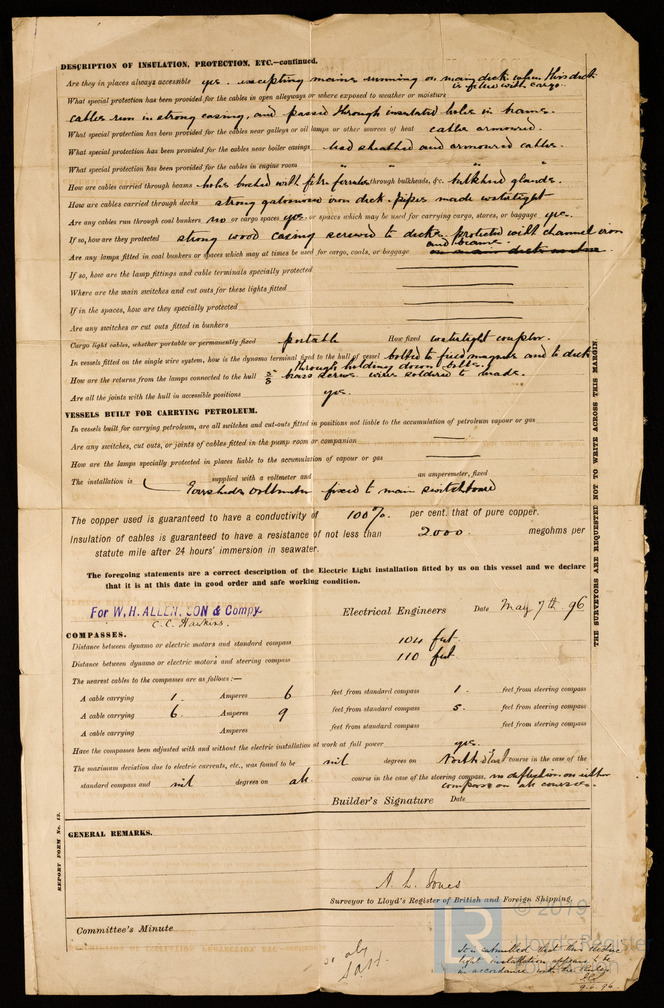 DESCRIPTION OF INSULATION, PROTECTION, ETC.—continued.
Are they in places always accessible yes. excepting mains running on main deck when this deck
is filled with cargo.
What special protection has been provided for the cables in open alleyways or where exposed to weather or moisture
cables run in strong casing, and passed through insulated holes in beams.
What special protection has been provided for the cables near galleys or oil lamps or other sources of heat cables armoured.
What special protection has been provided for the cables near boiler casings lead sheathed and armoured cables.
What special protection has been provided for the cables in engine room " " " "
How are cables carried through beams holes bushed with fibre ferrules through bulkheads, &c. bulkhead glands.
How are cables carried through decks strong galvanised iron deck pipes made watertight
Are any cables run through coal bunkers no or cargo spaces yes. or spaces which may be used for carrying cargo, stores, or baggage yes.
If so, how are they protected strong wood casing screwed to decks protected with channel iron
and beams.
Are any lamps fitted in coal bunkers or spaces which may at times be used for cargo, coals, or baggage
If so, how are the lamp fittings and cable terminals specially protected
Where are the main switches and cut outs for these lights fitted
If in the spaces, how are they specially protected
Are any switches or cut outs fitted in bunkers
Cargo light cables, whether portable or permanently fixed portable How fixed watertight coupler.
In vessels fitted on the single wire system, how is the dynamo terminal fixed to the hull of vessel bolted to field magnets and to deck
through holding down bolts.
How are the returns from the lamps connected to the hull 3/8 brass screws. wires soldered to
Are all the joints with the hull in accessible positions yes.
VESSELS BUILT FOR CARRYING PETROLEUM.
In vessels built for carrying petroleum, are all switches and cut-outs fitted in positions not liable to the accumulation of petroleum vapour or gas
Are any switches, cut outs, or joints of cables fitted in the pump room or companion —
How are the lamps specially protected in places liable to the accumulation of vapour or gas —
The installation is supplied with a voltmeter and an amperemeter, fixed
voltmeter fixed to main switchboard
The copper used is guaranteed to have a conductivity of 100%. per cent. that of pure copper.
Insulation of cables is guaranteed to have a resistance of not less than 2000. megohms per
statute mile after 24 hours' immersion in seawater.
The foregoing statements are a correct description of the Electric Light installation fitted by us on this vessel and we declare
that it is at this date in good order and safe working condition.
For W. H. ALLEN, SON & Compy. Electrical Engineers Date May 7th 96
C. C. Hawkins.
COMPASSES.
Distance between dynamo or electric motors and standard compass 104 feet
Distance between dynamo or electric motors and steering compass 110 feet
The nearest cables to the compasses are as follows:—
A cable carrying 1. Amperes 6 feet from standard compass 1. feet from steering compass
A cable carrying 6. Amperes 9 feet from standard compass 5. feet from steering compass
A cable carrying Amperes feet from standard compass feet from steering compass
Have the compasses been adjusted with and without the electric installation at work at full power yes.
The maximum deviation due to electric currents, etc., was found to be nil degrees on North & East course in the case of the
standard compass and nil degrees on all course in the case of the steering compass, no deflection on either
compass on all courses.
Builder's Signature Date
GENERAL REMARKS.
A. L. Jones
Surveyor to Lloyd's Register of British and Foreign Shipping.
Committee's Minute
It is submitted that this Electric
light installation appears to be
in accordance with the Rules
9.6.96.
THE SURVEYORS ARE REQUESTED NOT TO WRITE ACROSS THIS MARGIN
REPORT FORM No. 13.
LR
© 2019
Lloyd's Register
Foundation